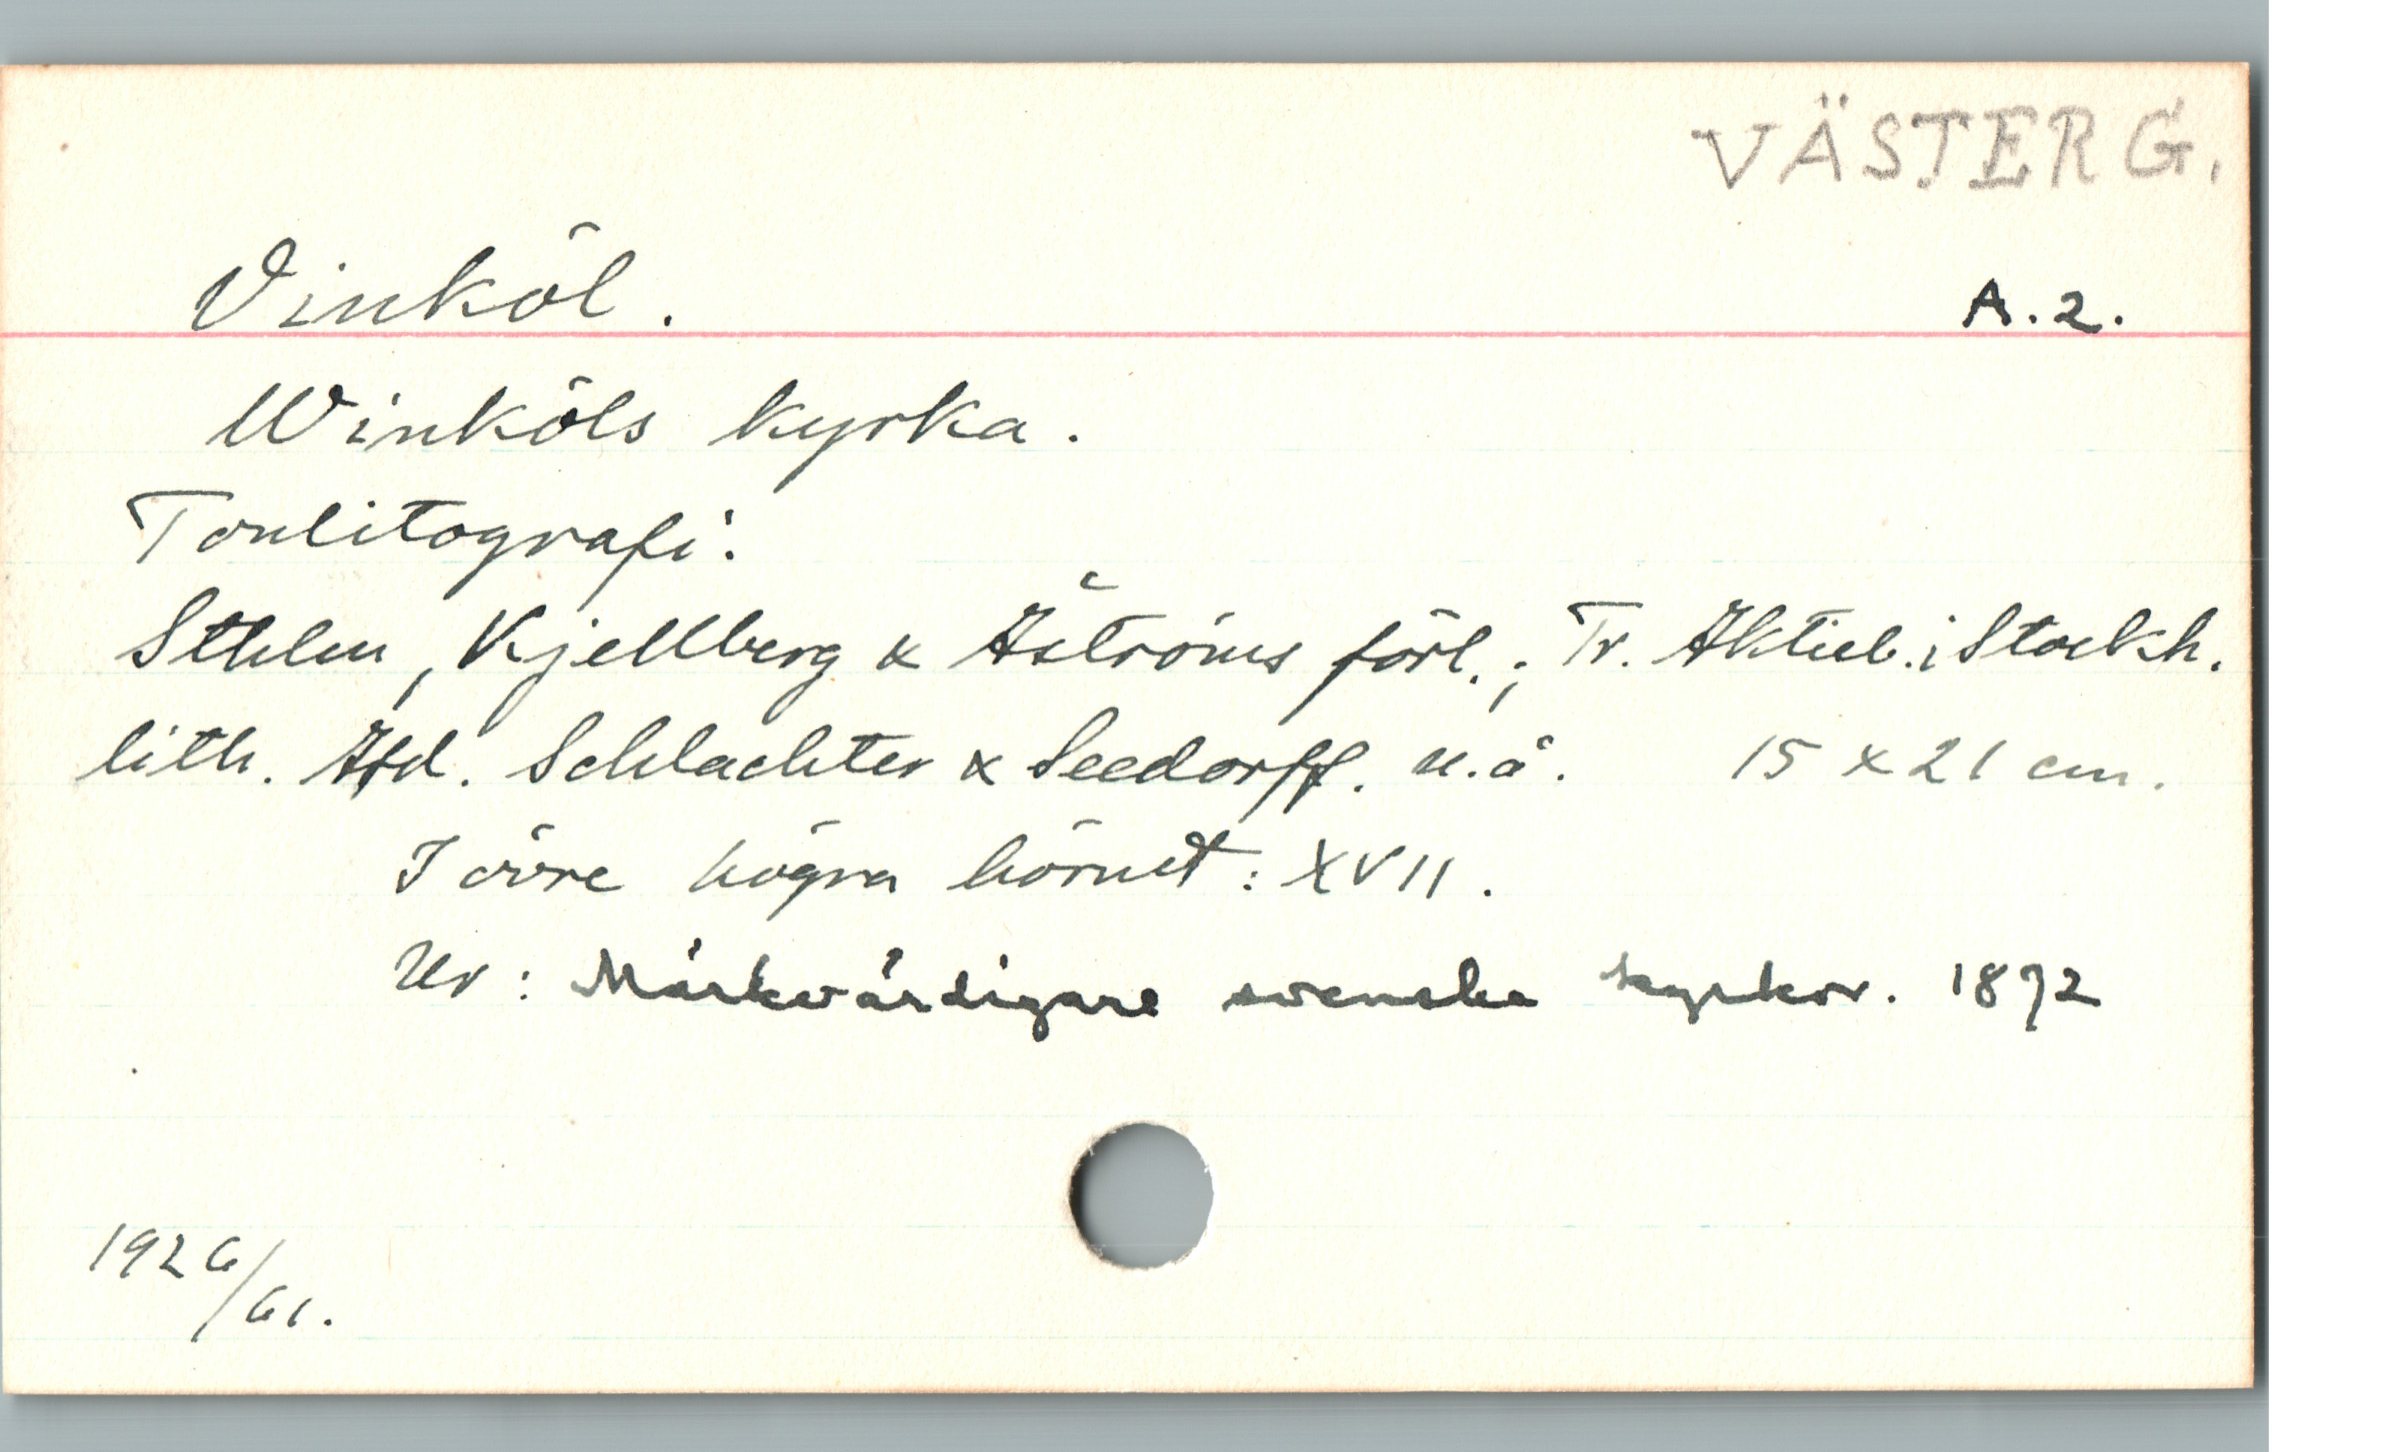 VÄSTERG.
Vinköl. A.2.
Winköls kyrka.
Tonlitografi.
Sthlm, Kjellberg & Åströms förl.; Tr. Aktieb. i Stockh.
lith. Afd. Schlachter & Seedorff. u.å. 15 x 21 cm.
I övre högra hörnet: XVII.
Ur: Märkvärdigare svenska kyrkor. 1872
1926/61.